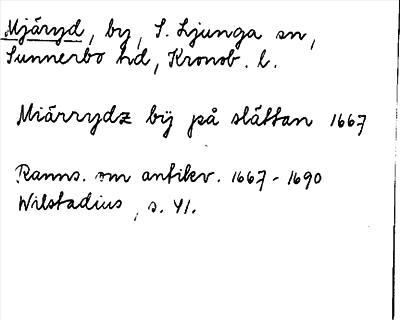 Mjäryd, by, S. Ljunga sn,
Sunnerbo hd, Kronob. l.
Miärrydz bÿ på slättan 1667
Ranns. om antikv. 1667-1690
Wilstadius, s. 41.